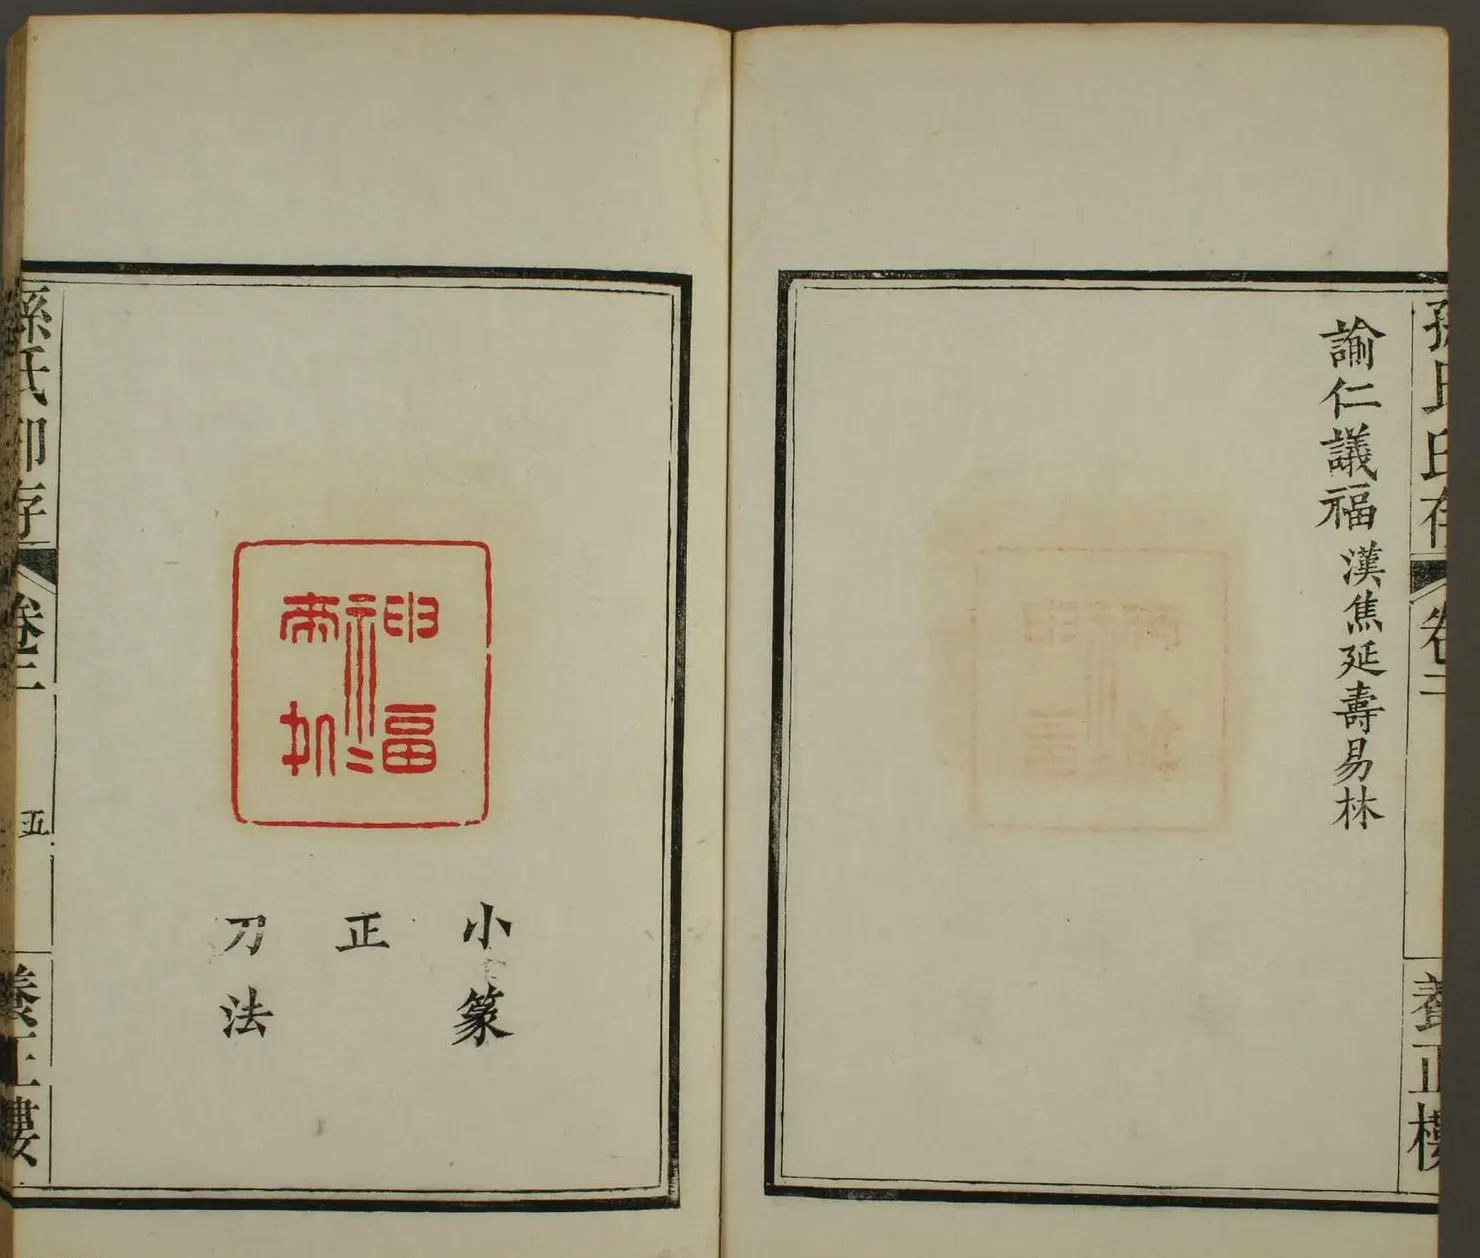 孫氏印存
卷二
養正樓
諭仁議福 漢焦延壽易林
神福
小篆
正
刀法
孫氏印存
卷二
五
養正樓